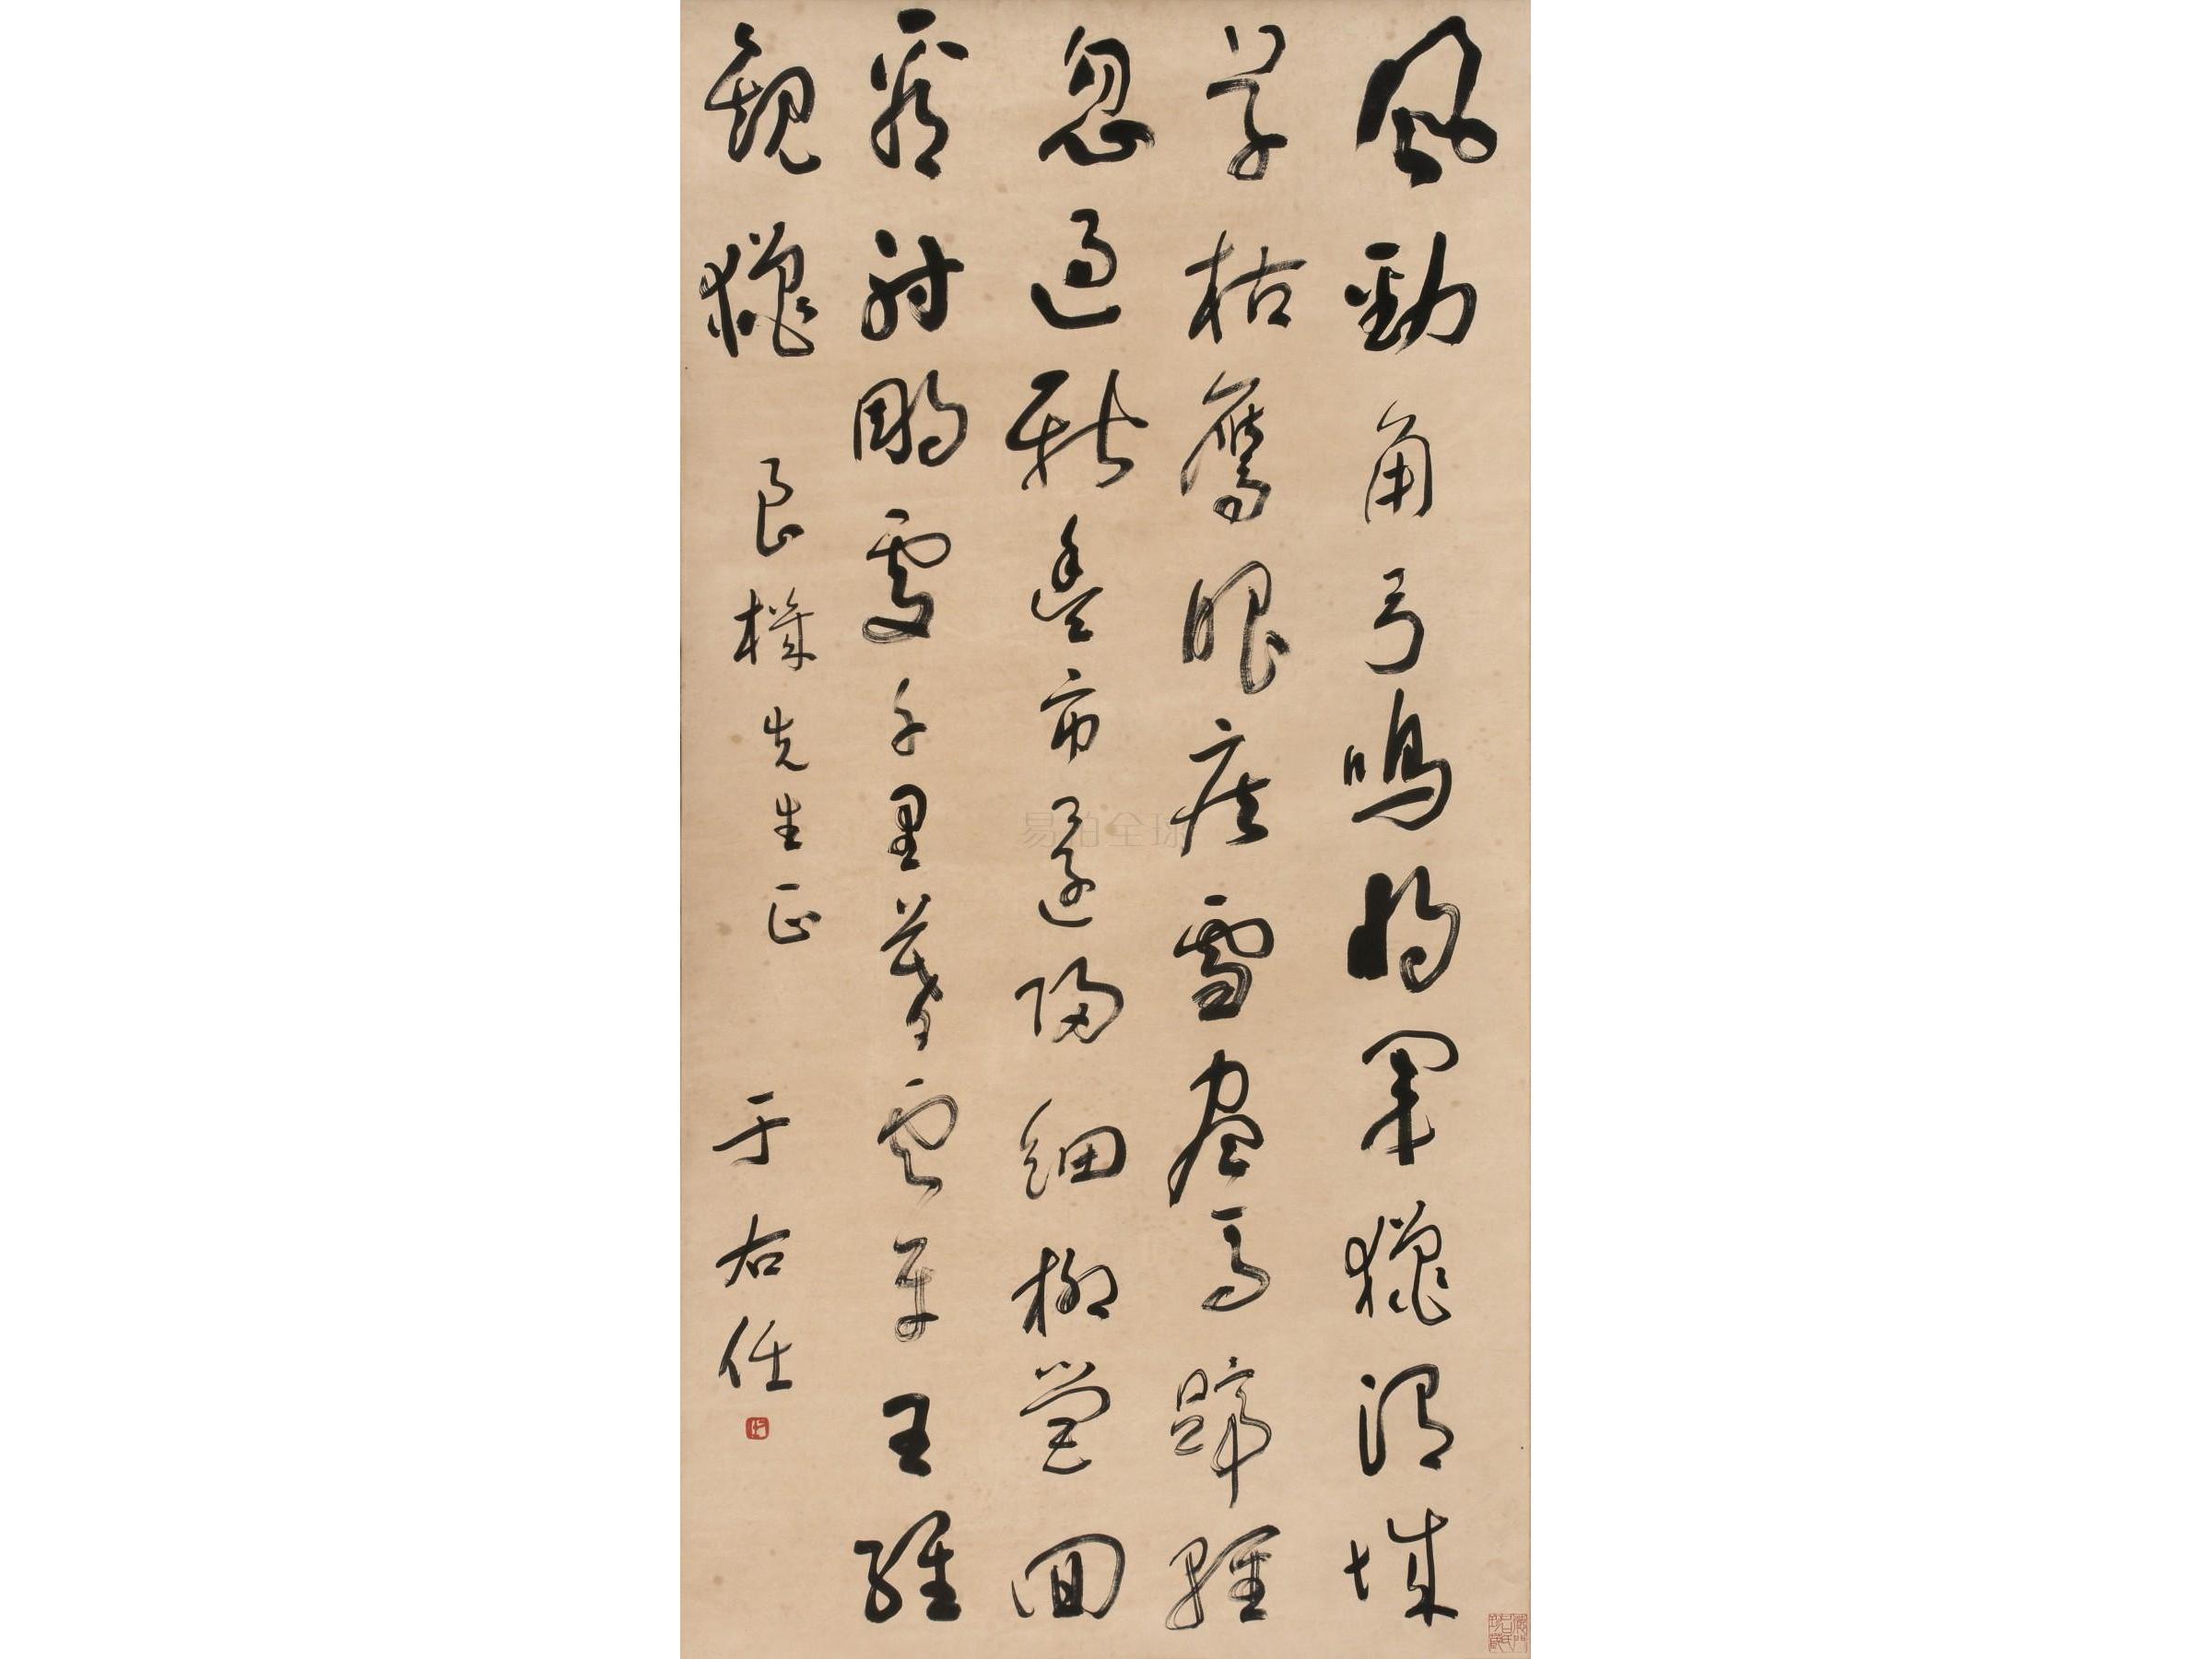 風勁角弓鳴將軍獵渭城
草枯鷹眼疾雪盡馬蹄輕
忽過新豐市還歸細柳營回
看射鵰處千里暮雲平王維
觀獵 良樸先生正 于右任
易拍全球